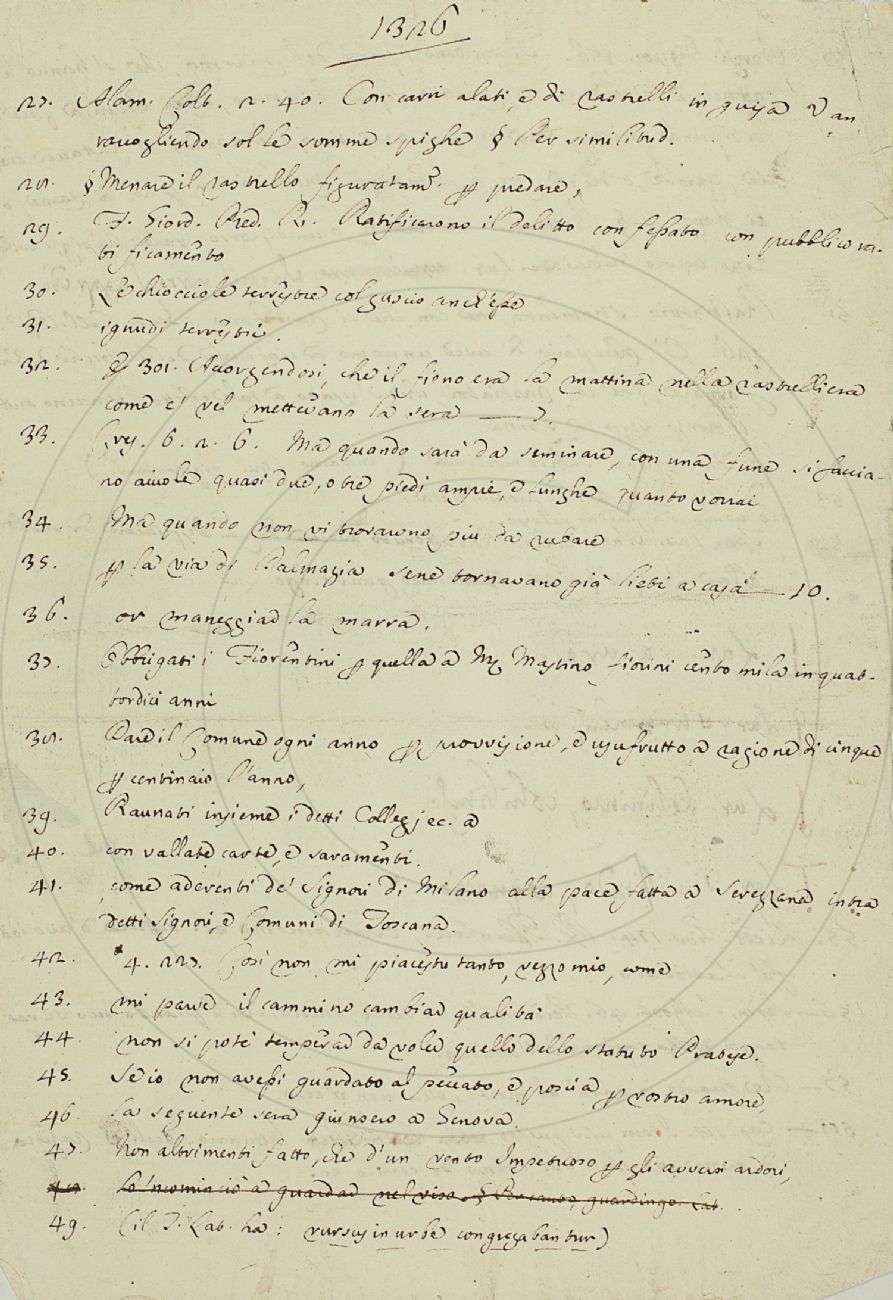 1326
27. Alam. Colt. 2. 40. Con carri alati, e di rastrelli in guisa Van
raccogliendo sol le somme spighe § Per similitud.
28. § Menare il rastrello figuratam. p predare,
29. F. Giord. Pred. R. Ratificarono il delitto confessato con pubblico ra-
tificamento
30. Le chiocciole terrestre col guscio anch'esse
31. ignudi terrestri.
32. E 301. Accorgendosi, che il fieno era la mattina nella rastrelliera
come e' vel mettevano la sera — 7.
33. Cres. 6. 2. 6. Ma quando sarà da seminare, con una fune si faccia-
no aiuole quasi due, o tre piedi ampie, e lunghe quanto vorrai
34. Ma quando non vi trovarono più da rubare
35. p la via di Dalmazia sene tornavano già lieti a casa — 10.
36. or maneggiar la marra.
37. Obbrigati i Fiorentini p quella a M Mastino fiorini cento mila in quat-
tordici anni
38. Dare il Comune ogni anno p provvisione, e usufrutto a ragione di cinque
p centinaio l'anno,
39. Raunati insieme i detti Collegj ec. a
40. con vallate carte, e saramenti.
41. come aderenti de' Signori di Milano alla pace fatta a Serezzana intra
detti Signori, e Comuni di Toscana.
42. 4. 227. Così non mi piacestu tanto, vezzo mio, come
43. mi parve il cammino cambiar qualità
44. non si potè temperar da voler quello dello statuto Pratese.
45. Se io non avessi guardato al peccato, e poscia p vostro amore,
46. la seguente sera giunsero a Genova.
47. Non altrimenti fatto, che d'un vento Impetuoso p gli avversi ardori,
48. Lo 'ncominciò a guardar nel viso § Per cauto, guardingo. Lat.
49. (il T. Lat. ha: rursus in urbe congregabantur)